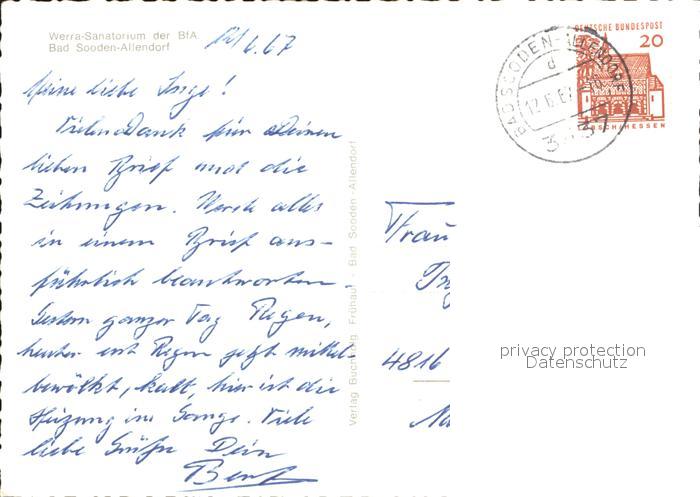 Werra-Sanatorium der BfA.
Bad Sooden-Allendorf
12/6.67
Meine liebe Inge!
Vielen Dank für Deinen
lieben Brief und die
Zeichnungen. Werde alles
in einem Brief aus-
führlich beantworten.
Gestern ganzer Tag Regen,
heute erst Regen jetzt mittel-
bewölkt, kalt, hier ist die
Heizung im Gange. Viele
liebe Grüße Dein
Verlag Buchhdlg. Frühauf - Bad Sooden-Allendorf
DEUTSCHE BUNDESPOST
20
BAD SOODEN-ALLENDORF
d
12.6.67
Frau
4816
privacy protection
Datenschutz